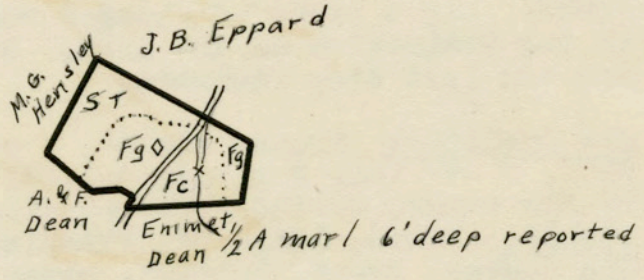 J.B. Eppard
M.G.
Hensley
ST
Fg
Fg
Fc
A. & F.
Dean
Emmet
Dean
1/2 A marl 6' deep reported